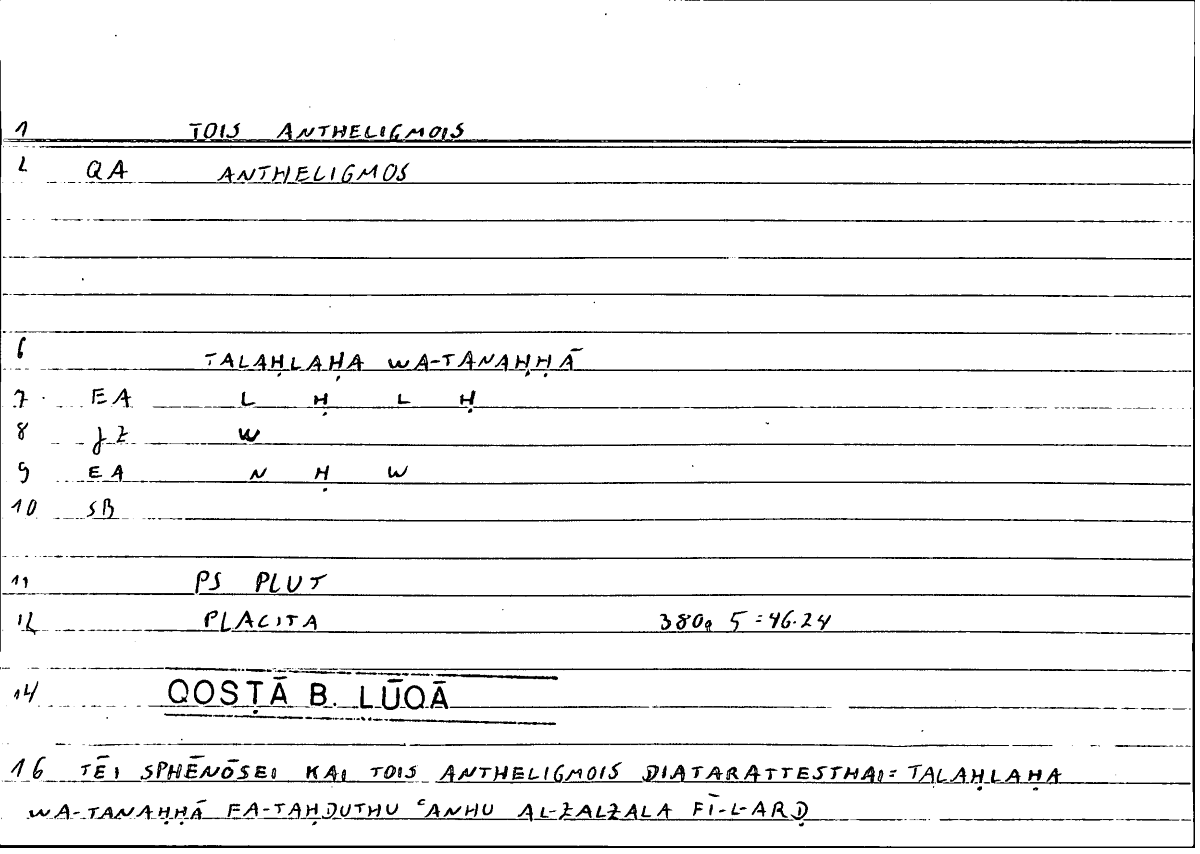 1 TOIS ANTHELIGMOIS
2 QA ANTHELIGMOS
6 TALAḤLAḤA WA-TANAḤḤĀ
7 EA L Ḥ L Ḥ
8 JZ W
9 EA N Ḥ W
10 SB
11 PS PLUT
12 PLACITA 380a 5=46.24
14 QOSṬĀ B. LŪQĀ
16 TĒI SPHĒNŌSEI KAI TOIS ANTHELIGMOIS DIATARATTESTHAI= TALAḤLAḤA
WA-TANAḤḤĀ FA-TAḤDUTHU ʿANHU AL-ZALZALA FĪ-L-ARḌ